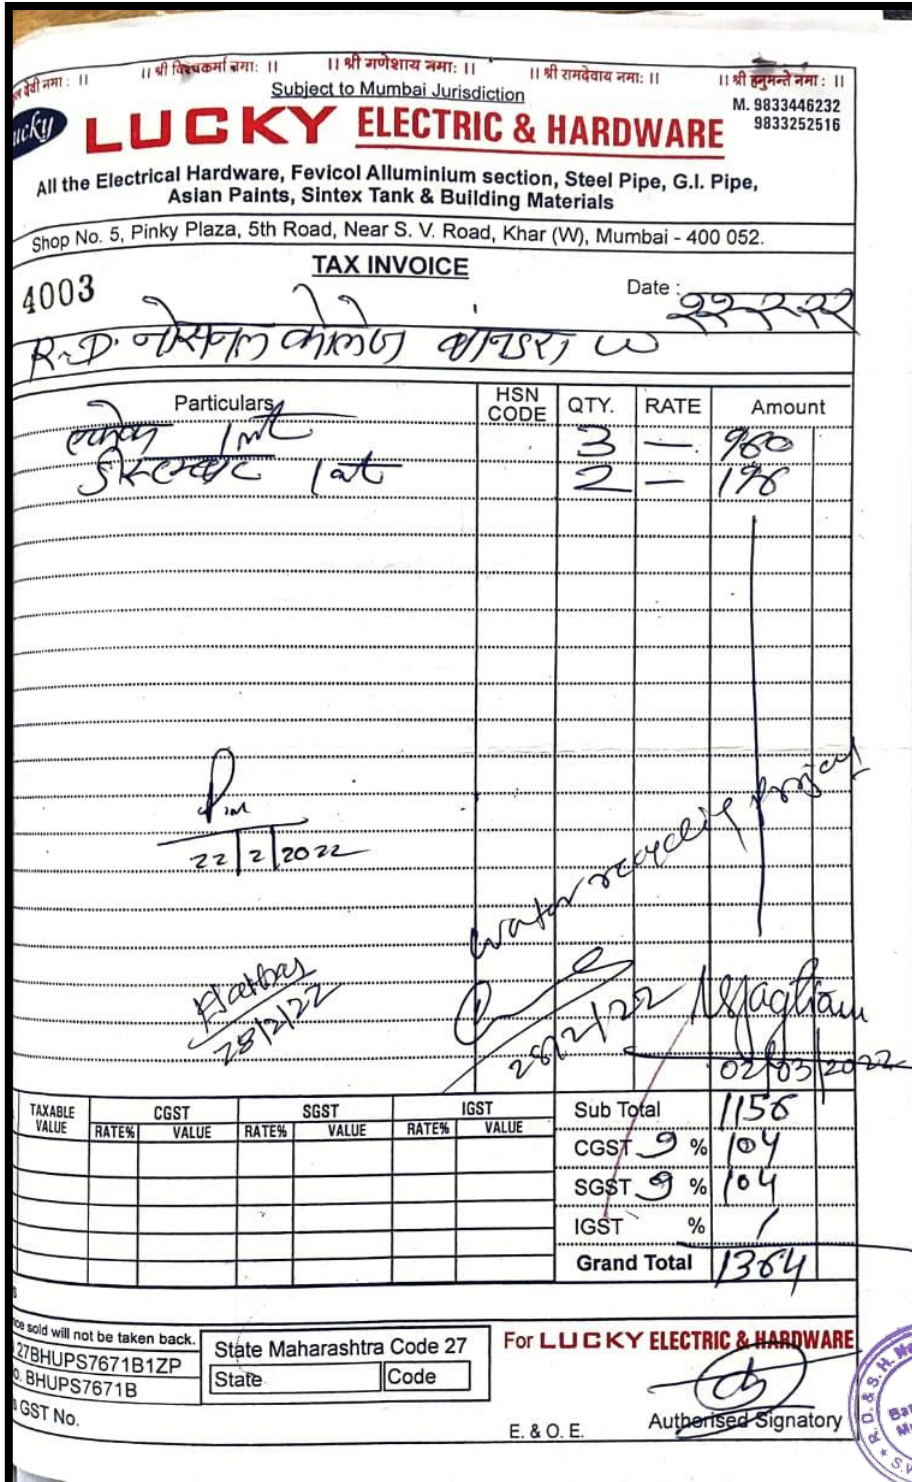 ।। श्री विश्वकर्मा नमः ।। ।। श्री गणेशाय नमः ।। ।। श्री रामदेवाय नमः ।। ।। श्री हनुमन्ते नमः ।।
देवी नमः ।।
Subject to Mumbai Jurisdiction
M. 9833446232
9833252516
ucky LUCKY ELECTRIC & HARDWARE
All the Electrical Hardware, Fevicol Alluminium section, Steel Pipe, G.I. Pipe,
Asian Paints, Sintex Tank & Building Materials
Shop No. 5, Pinky Plaza, 5th Road, Near S. V. Road, Khar (W), Mumbai - 400 052.
TAX INVOICE
4003 Date : २२-२-२२
R.D. नेशनल कोलेज बांडरा W
Particulars HSN CODE QTY. RATE Amount
3 — 960
2 — 196
22/2/2022
water recycling project
28/2/22 28/2/22
02/03/2022
TAXABLE VALUE CGST SGST IGST
RATE% VALUE RATE% VALUE RATE% VALUE
Sub Total 1156
CGST 9 % 104
SGST 9 % 104
IGST % /
Grand Total 1364
sold will not be taken back.
27BHUPS7671B1ZP
BHUPS7671B
GST No.
State Maharashtra Code 27
State Code
For LUCKY ELECTRIC & HARDWARE
E. & O. E. Authorised Signatory
R. D. & S. H.